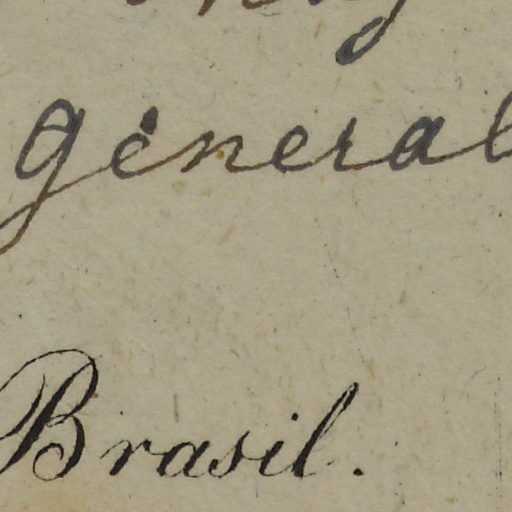 general
Brasil.